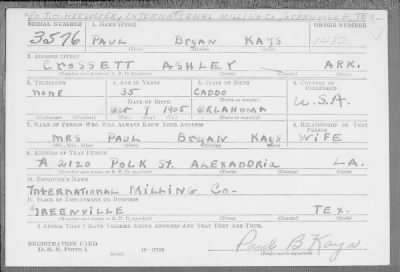 INTERNATIONAL MILLING CO. GREENVILLE, TEX
SERIAL NUMBER 1. NAME (Print) ORDER NUMBER
3576 PAUL BRYAN KAYS
(First) (Middle) (Last)
2. ADDRESS (Print)
CROSSETT ASHLEY ARK.
(Number and street or R. F. D. number) (Town) (County) (State)
3. TELEPHONE 4. AGE IN YEARS 5. PLACE OF BIRTH 6. COUNTRY OF CITIZENSHIP
NONE 35 CADDO U.S.A.
DATE OF BIRTH (Town or county)
Oct 9 1905 OKLAHOMA
(Mo.) (Day) (Yr.) (State or country)
7. NAME OF PERSON WHO WILL ALWAYS KNOW YOUR ADDRESS 8. RELATIONSHIP OF THAT PERSON
MRS PAUL BRYAN KAYS WIFE
(Mr., Mrs., Miss) (First) (Middle) (Last)
9. ADDRESS OF THAT PERSON
2120 POLK ST. ALEXANDRIA LA.
(Number and street or R. F. D. number) (Town) (County) (State)
10. EMPLOYER'S NAME
INTERNATIONAL MILLING CO-
11. PLACE OF EMPLOYMENT OR BUSINESS
GREENVILLE TEX.
(Number and street or R. F. D. number) (Town) (County) (State)
I AFFIRM THAT I HAVE VERIFIED ABOVE ANSWERS AND THAT THEY ARE TRUE.
REGISTRATION CARD
D. S. S. Form 1 16-17105
Paul B Kays
(Registrant's signature)